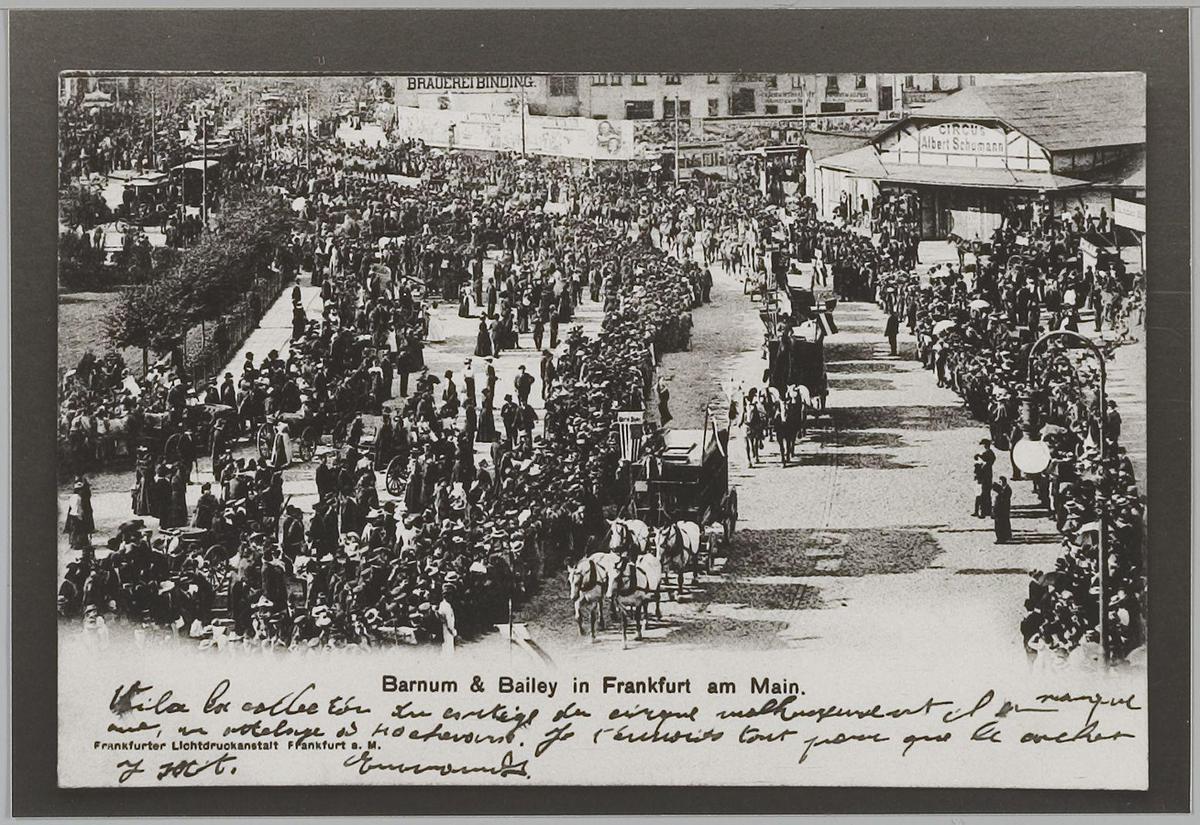 BRAUEREI BINDING.
CIRCUS
Albert Schumann
Barnum & Bailey in Frankfurt am Main.
Voila la collection du cortège du cirque malheureusement il en manque
une, un attelage à 40 chevaux. Je t'envoies tout pour que le cocher
Frankfurter Lichtdruckanstalt Frankfurt a. M.
y soit.